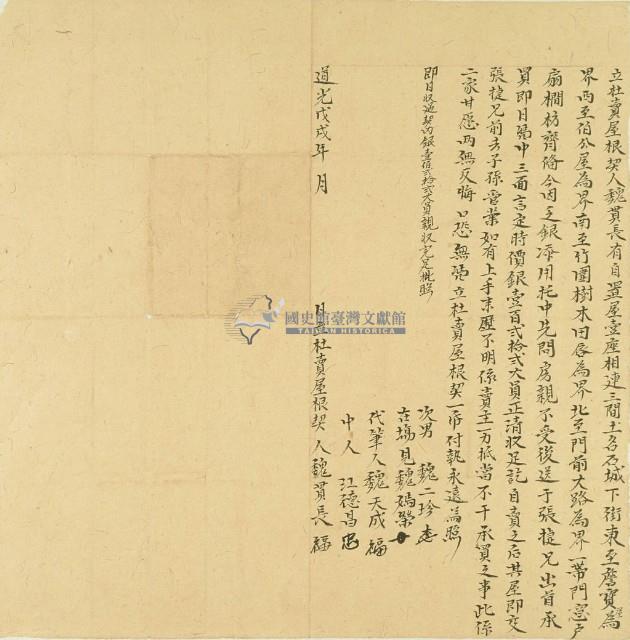 立杜賣屋根契人魏貫長有自置屋壹座相連三間土名石城下街東至詹寶為
界西至伯公屋為界南至竹圍樹木田唇為界北至門前大路為界一帶門窓戶
扇櫚枋齊俻今因乏銀湊用托中先問房親不受後送于張捷兄出首承
買即日仝中三面言定時價銀壹百弍拾弍大員正清収足訖自賣之后其屋即交
張捷兄前去子孫管業如有上手来歷不明係賣主一力抵當不干承買之事此係
二家甘愿两無反悔口恐無憑立杜賣屋根契一帋付執永遠為照
即日収過契內銀壹佰弍拾弍大員親収完足批照
次男 魏二珍
在塲見魏媽榮
代筆人魏天成 福
中人 江德昌 忠
道光戊戌年 月 日立杜賣屋根契人魏貫長 福
國史館臺灣文獻館
TAIWAN HISTORICA